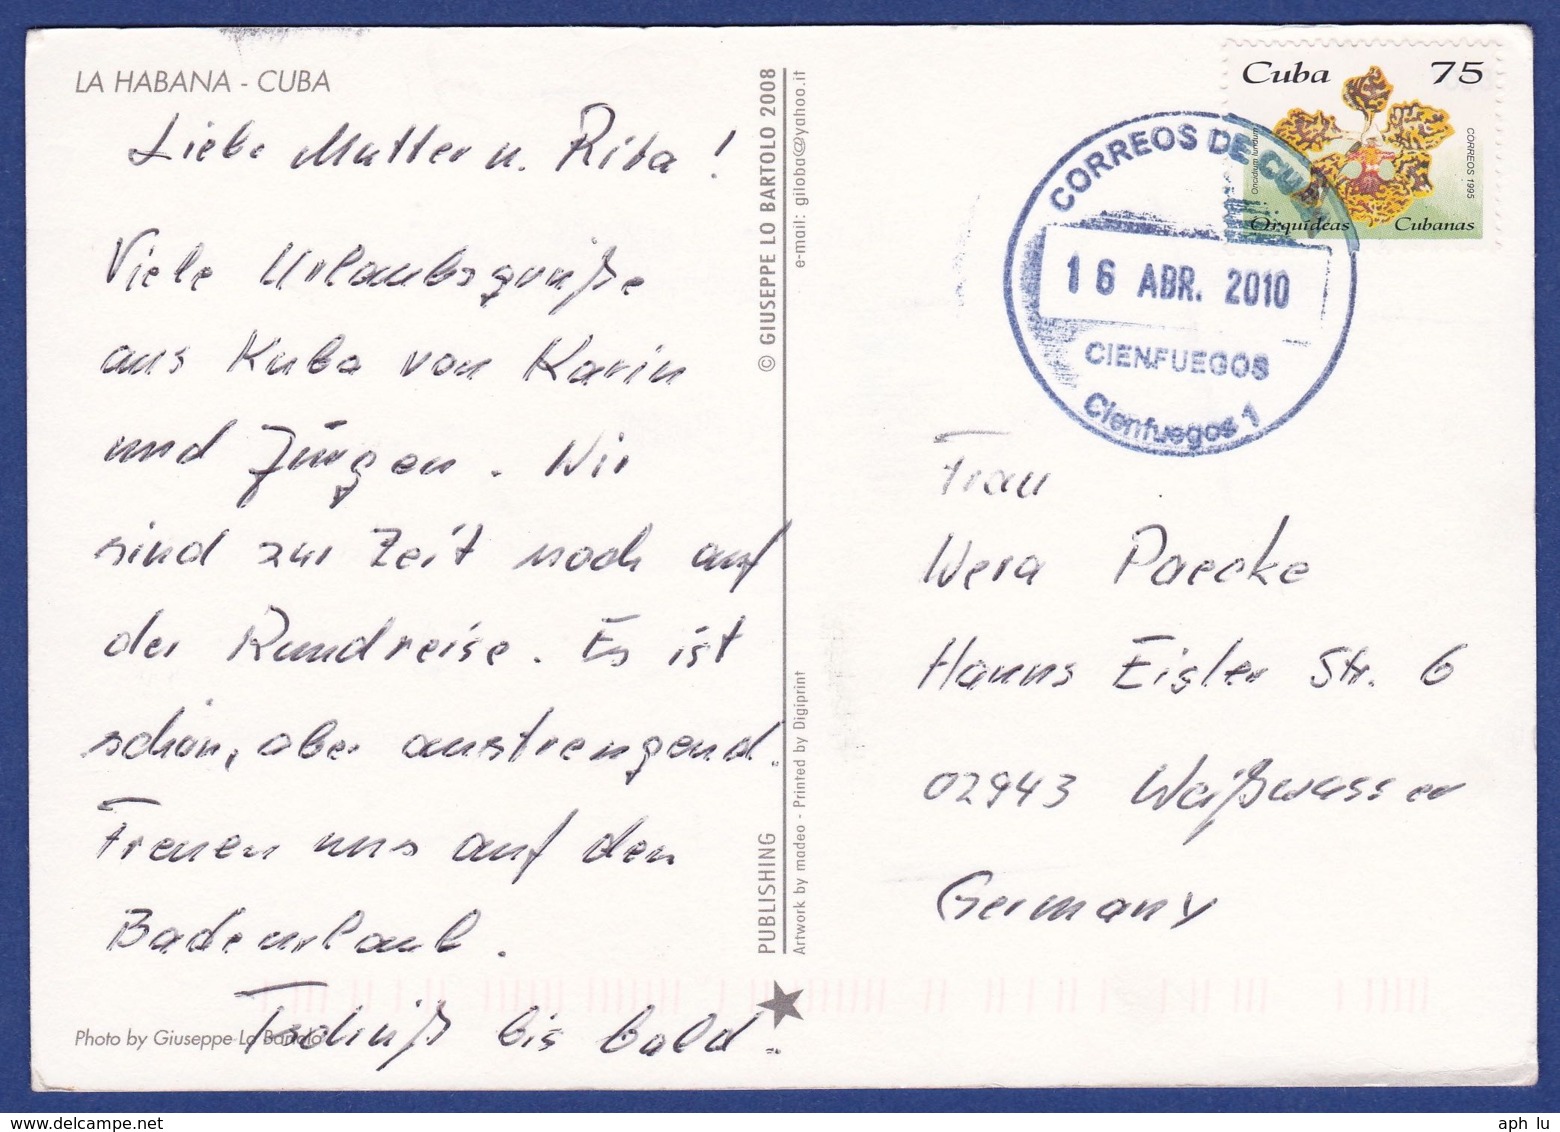 LA HABANA - CUBA
Liebe Mutter u. Rita!
Viele Urlaubsgrüße
aus Kuba von Karin
und Jürgen. Wir
sind zur Zeit noch auf
der Rundreise. Es ist
schön, aber anstrengend.
Freuen uns auf den
Badeurlaub.
Tschüß bis bald.
Photo by Giuseppe Lo Bartolo
PUBLISHING © GIUSEPPE LO BARTOLO 2008
Artwork by madeo - Printed by Digiprint e-mail: giloba@yahoo.it
Cuba 75
Oncidium luridum
CORREOS 1995
Orquídeas Cubanas
CORREOS DE CUBA
16 ABR. 2010
CIENFUEGOS
Cienfuegos 1
Frau
Wera Paecke
Hanns Eisler Str. 6
02943 Weißwasser
Germany
aph lu